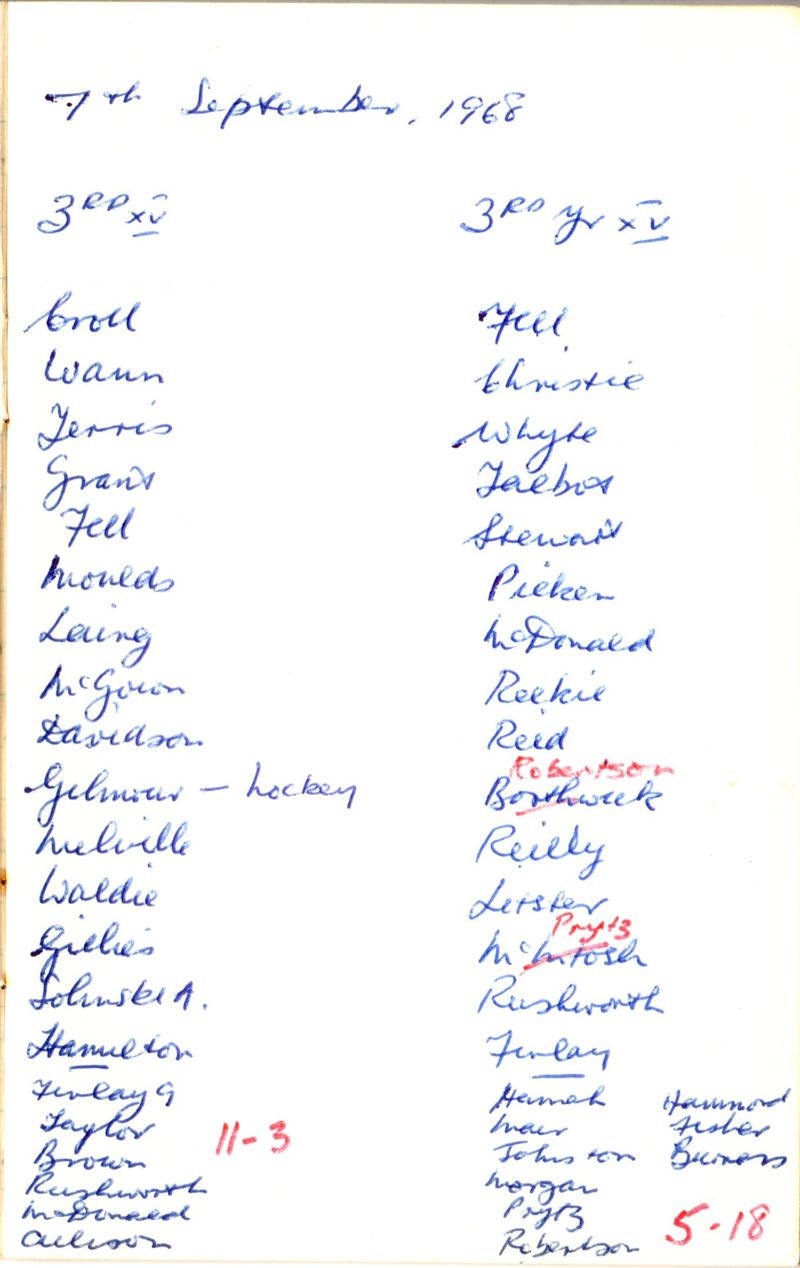 7th September, 1968
3RD XV
Croll
Wann
Ferris
Grant
Fell
Moulds
Laing
McGown
Davidson
Gilmour - hockey
Melville
Waldie
Gillies
Solinski A.
Hamilton
Finlay G
Taylor
Brown
Rushworth
McDonald
11-3
3RD Yr XV
Fell
Christie
Whyte
Talbot
Stewart
Picken
McDonald
Reekie
Reid
Robertson
Borthwick
Reilly
Leister
Prytz
McIntosh
Rushworth
Finlay
Hannah Hammond
Mair Fisher
Johnston Burness
Morgan
Prytz
Robertson
5-18